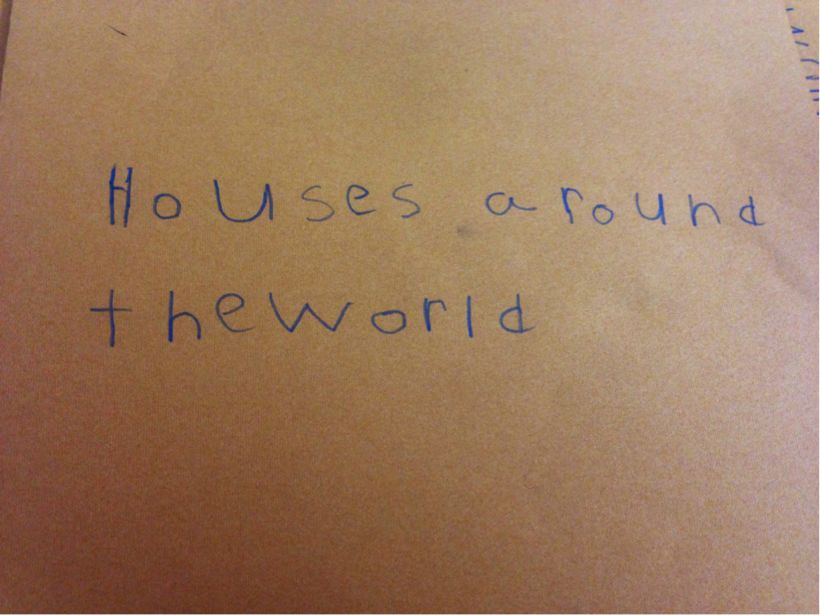 Houses around
theworld